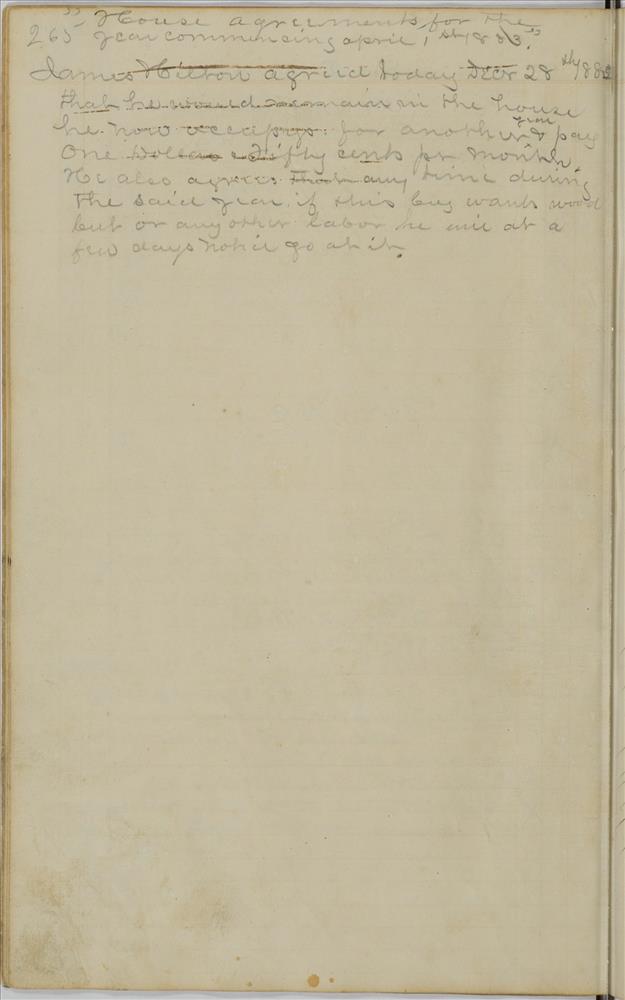 " House agreements for the
265 year commencing april 1st 1883."
James Hilton agreed today Decr 28th 1882
that he would remain in the house
he now occupys for another year & pay
One Dollar & Fifty cents pr month
He also agrees that any time during
the said year if this boy wants wood
cut or any other labor he will at a
few days notice go at it.